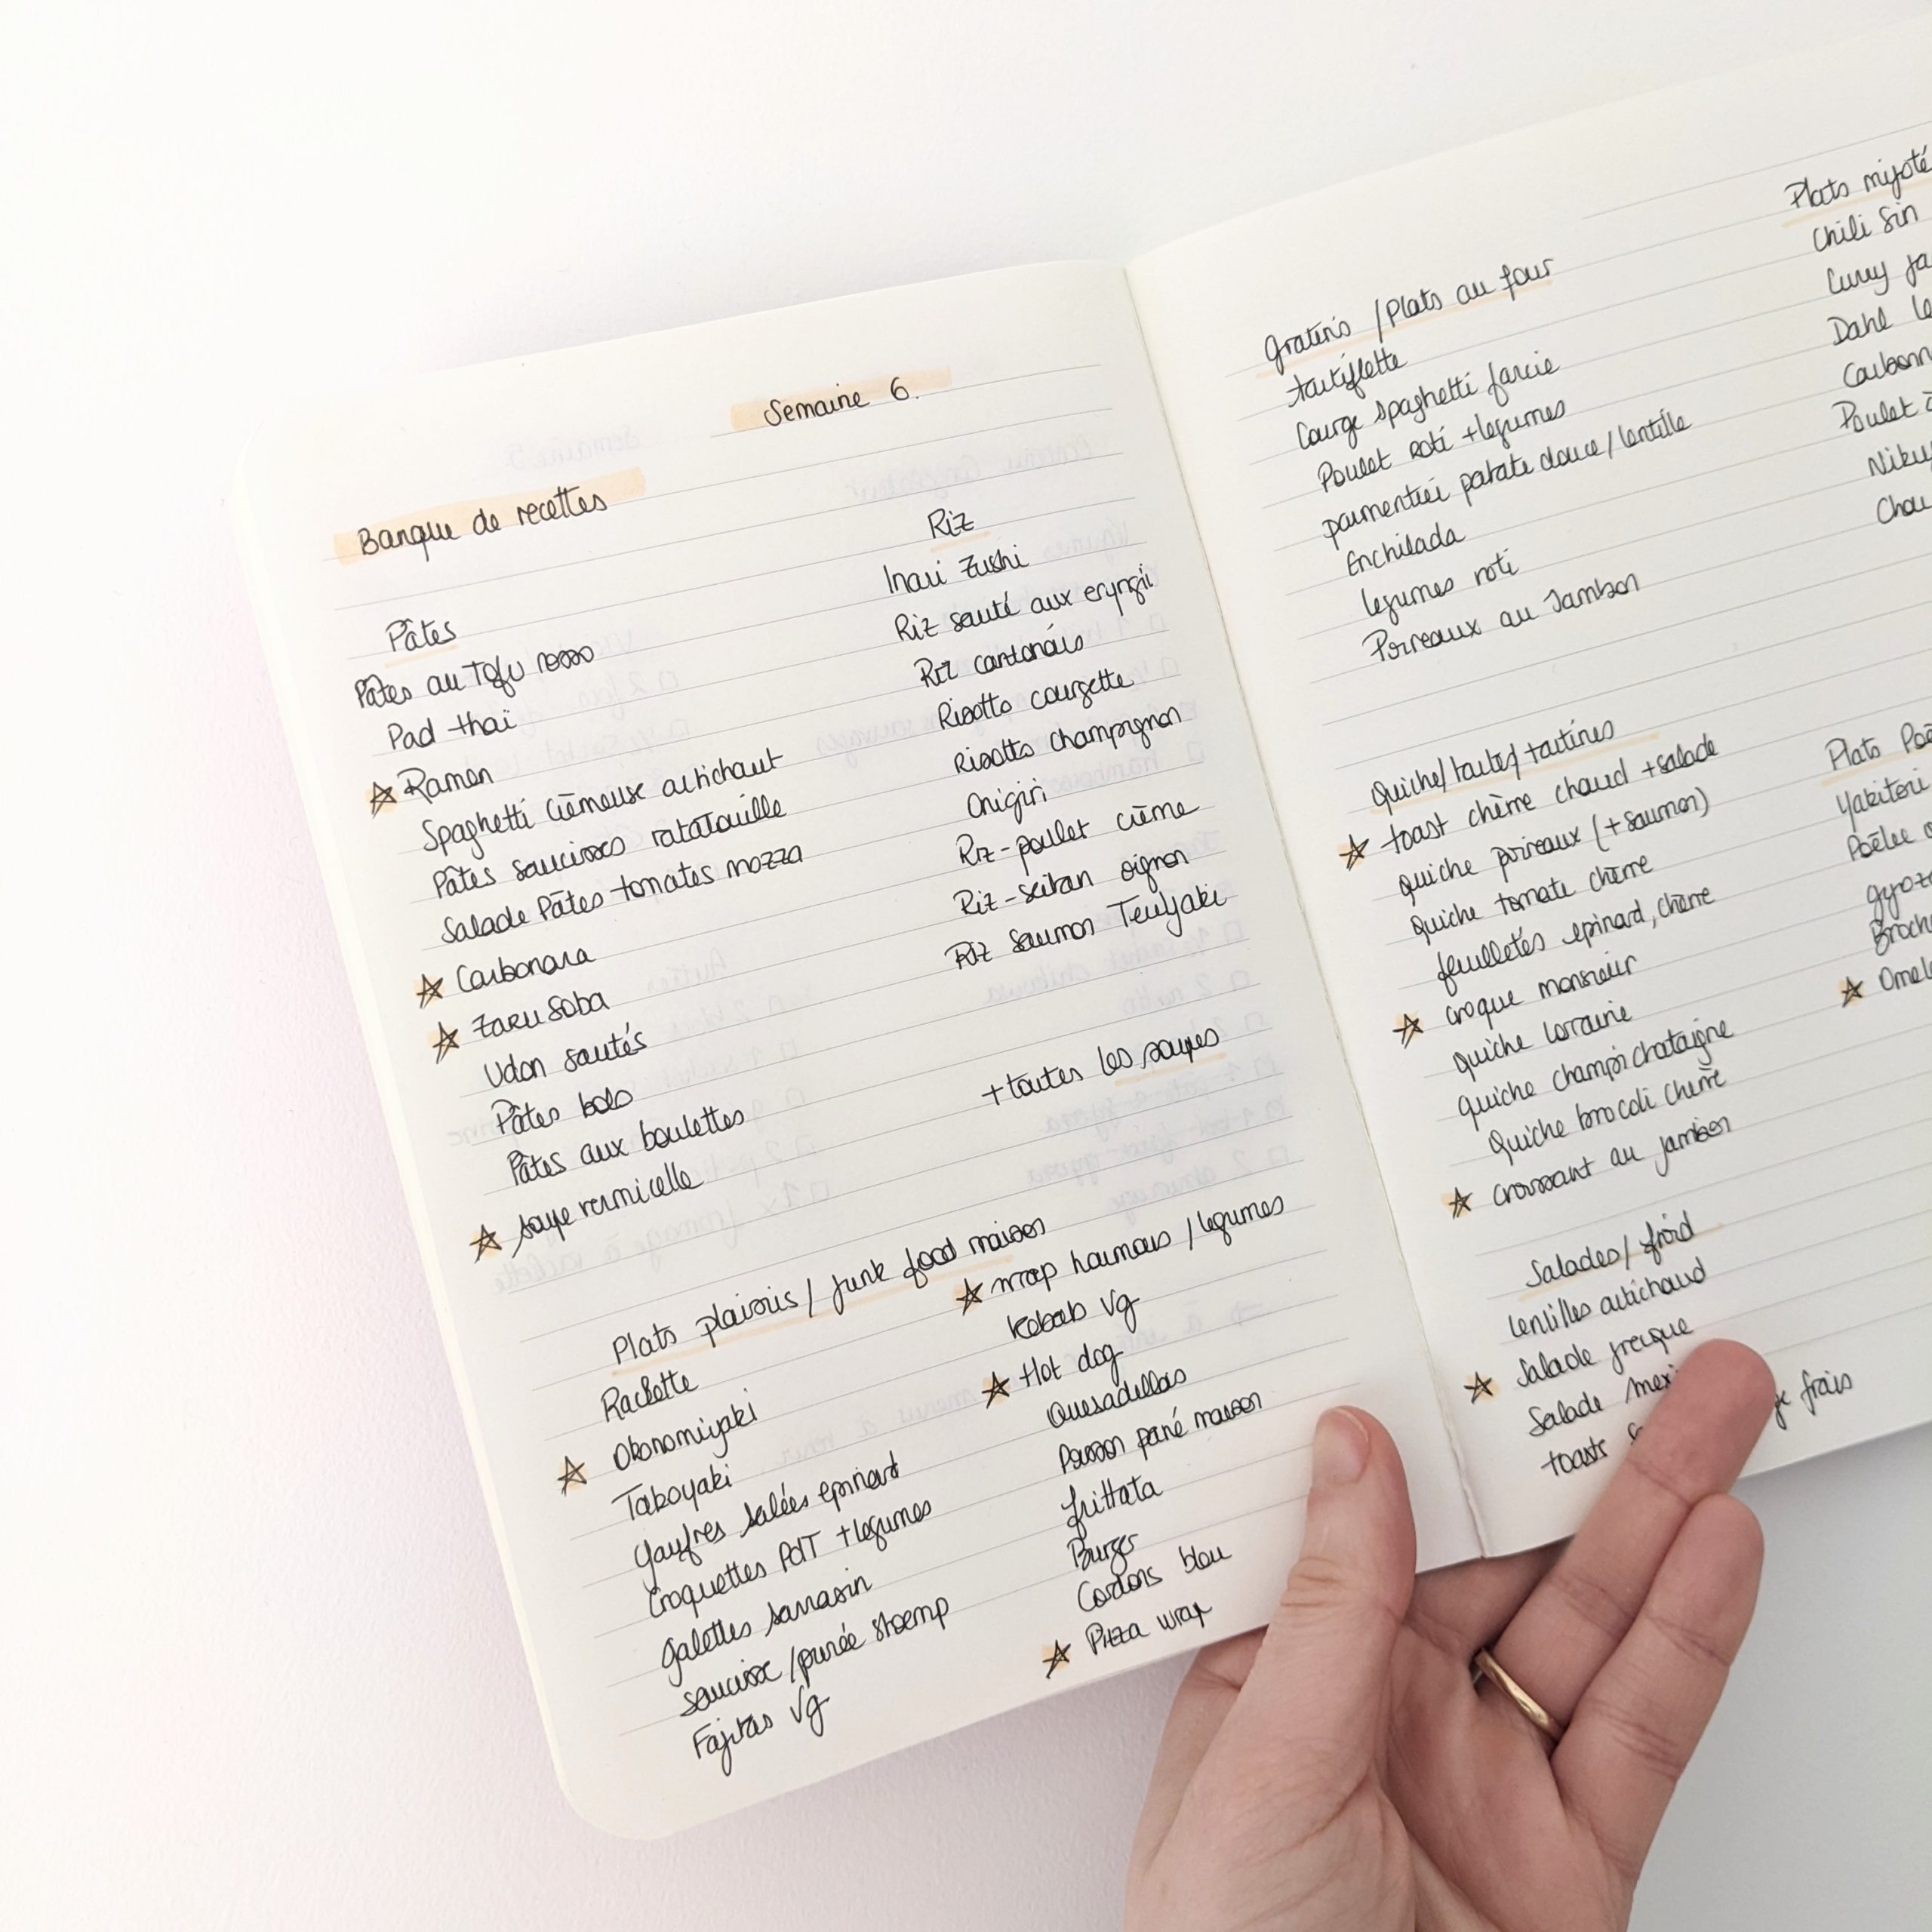 Semaine 6.
Banque de recettes
Pâtes
Pâtes au Tofu rosso
Pad thaï
☆ Ramen
Spaghetti Crèmeuse artichaut
Pâtes saucisses ratatouille
Salade Pâtes tomates mozza
☆ Carbonara
☆ ZARU SOBA
Udon sautés
Pâtes bolo
Pâtes aux boulettes
☆ soupe vermicelle
Riz
Inari Zushi
Riz sauté aux eryngii
Riz cantonais
Risotto courgette
Risotto champignon
Onigiri
Riz-poulet crème
Riz-seitan oignon
Riz saumon Teriyaki
+toutes les soupes
Plats plaisirs / junk food maison
Raclette
☆ Okonomiyaki
Takoyaki
gaufres salées epinard
Croquettes PdT + legumes
galettes sarrasin
saucisse / purée stoemp
Fajitas Vg
☆ wrap houmous / legumes
Kebab Vg
☆ Hot dog
Quesadillas
Poisson pané maison
frittata
Burger
Cordons bleu
☆ Pizza wrap
gratins / Plats au four
tartiflette
Courge spaghetti farcie
Poulet roti + legumes
parmentier patate douce / lentille
Enchilada
legumes roti
Poireaux au Jambon
Quiche / tarte / tartines
☆ toast chèvre chaud + salade
quiche poireaux (+ saumon)
Quiche tomate chèvre
feuilletés epinard, chèvre
☆ croque monsieur
quiche Lorraine
quiche champi chataigne
Quiche brocoli chèvre
☆ croissant au jambon
Salades / froid
Lentilles artichaud
☆ Salade grecque
Salade mexi
toasts frais
Plats mijoté
Chili Sin
Curry ja
Dahl le
Carbonn
Poulet à
Niku
Chou
Plats Poê
Yakitori
Poêlee
gyoza
Broch
☆ Omel